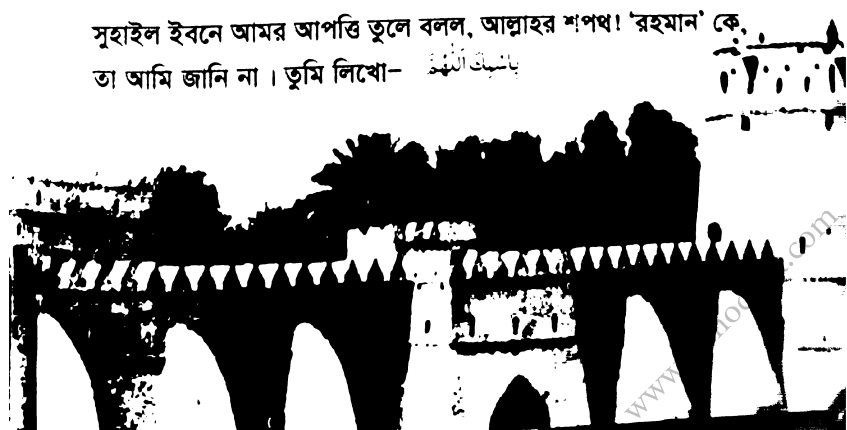 সুহাইল ইবনে আমর আপত্তি তুলে বলল, আল্লাহর শপথ! ‘রহমান’ কে,
তা আমি জানি না । তুমি লিখো– بِاسْمِكَ اَللّٰهُمَّ